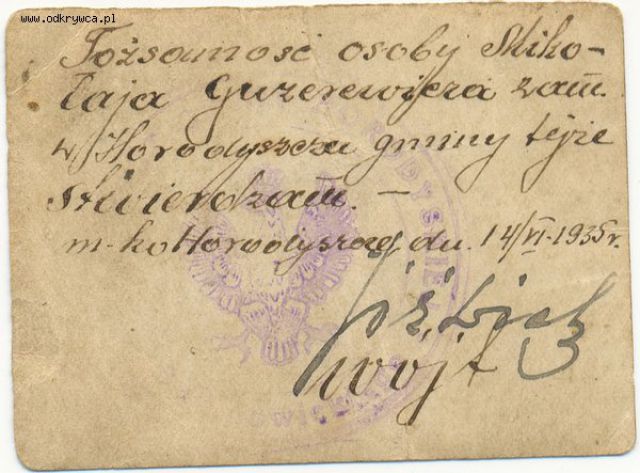 www.odkrywca.pl
Tożsamość osoby Miko-
łaja Guzerewicza zam.
w Horodyszczu gminy tejże
stwierdzam. —
m-ko Horodyszcze, dn. 14/VI-1935 r.
wójt